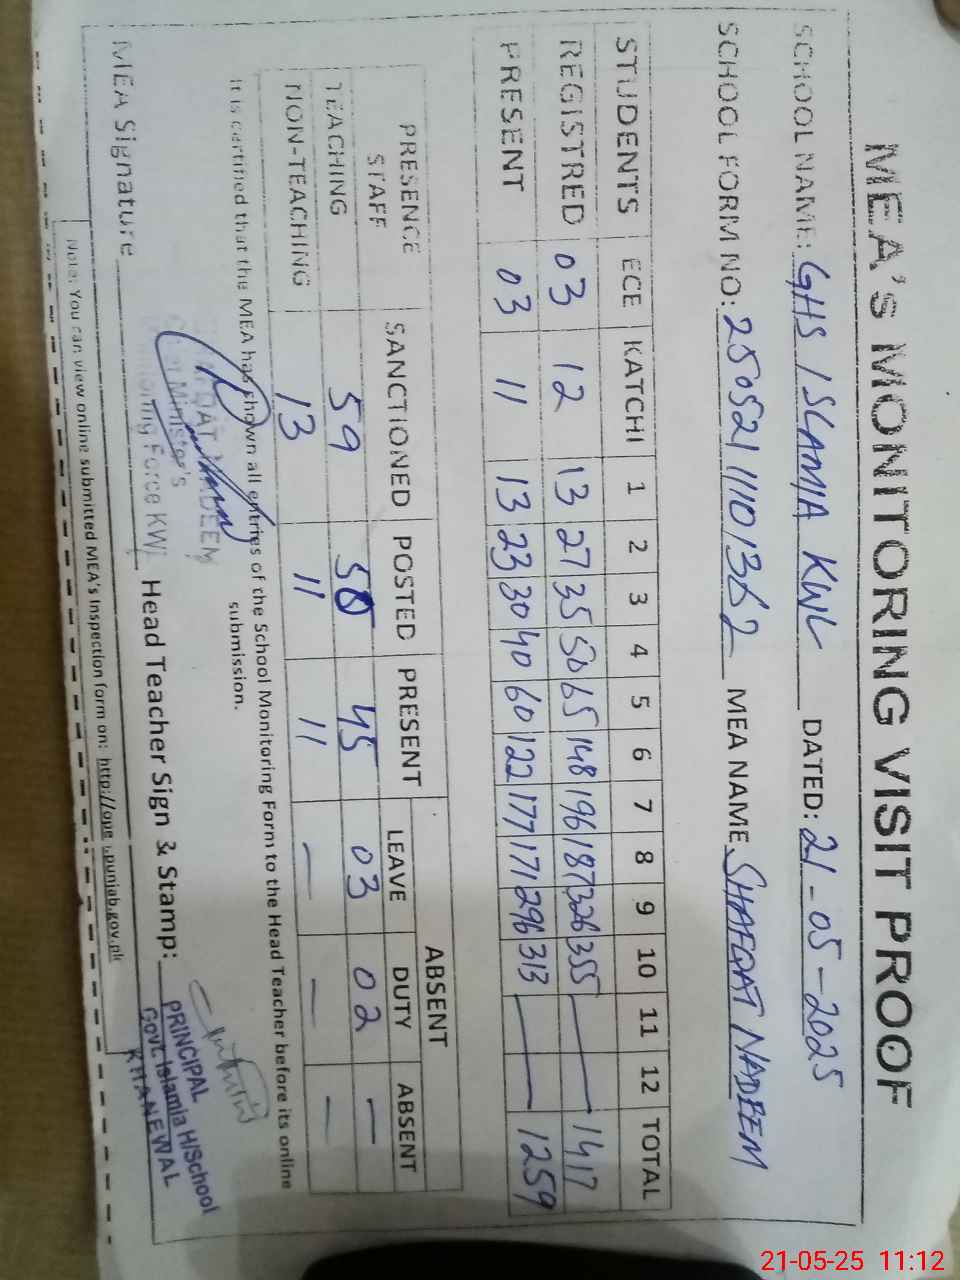 MEA'S MONITORING VISIT PROOF
SCHOOL NAME: GHS ISLAMIA KWL DATED: 21-05-2025
SCHOOL FORM NO: 250521110 MEA NAME SHAFQAT NADEEM
STUDENTS ECE KATCHI 1 2 3 4 5 6 7 8 9 10 11 12 TOTAL
REGISTRED 03 12 13 27 35 50 65 148 196 187 326 355 — 1417
PRESENT 03 11 13 23 30 40 60 122 177 171 296 313 — 1259
PRESENCE STAFF SANCTIONED POSTED PRESENT ABSENT
LEAVE DUTY ABSENT
TEACHING 59 50 45 03 02 —
NON-TEACHING 13 11 11 — — —
It is certified that the MEA has shown all entries of the School Monitoring Form to the Head Teacher before its online
submission.
NADEEM
Minister's
Monitoring Force KWL
MEA Signature Head Teacher Sign & Stamp:
PRINCIPAL
Govt. Islamia H/School
KHANEWAL
Note: You can view online submitted MEA's Inspection form on: .punjab.gov.pk
21-05-25 11:12